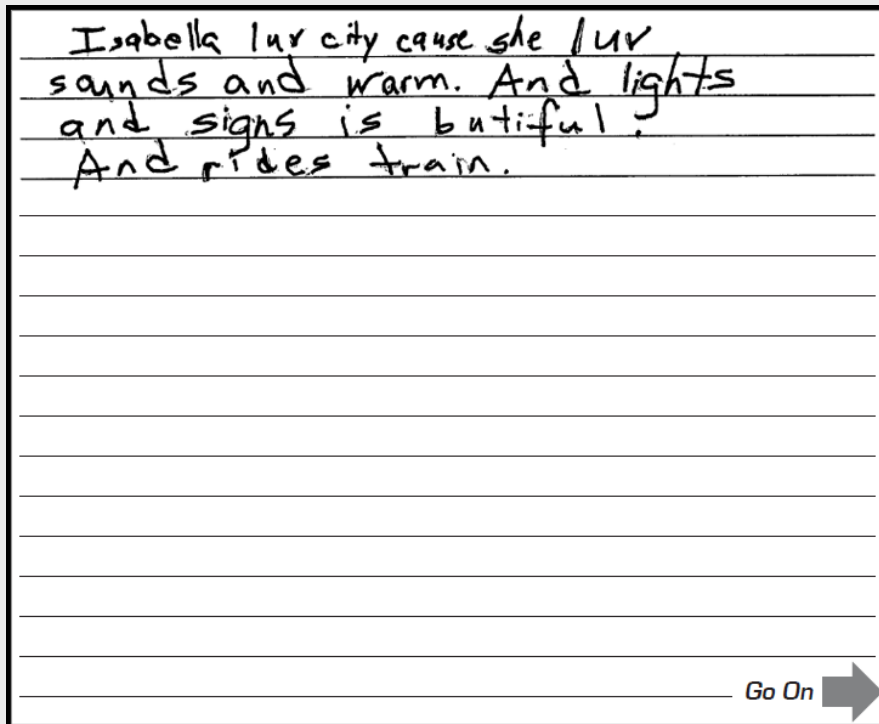 Isabella luv city cause she luv
sounds and warm. And lights
and signs is butiful.
And rides train.
Go On